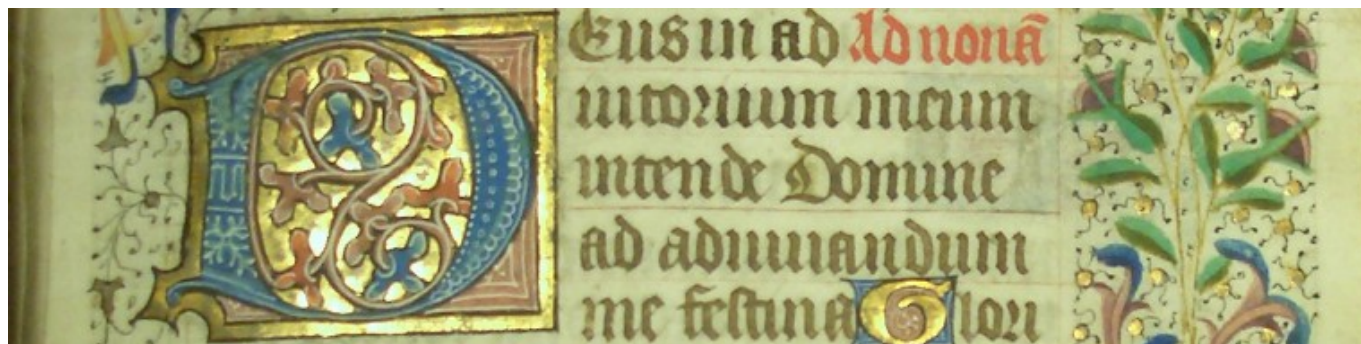 Deus in ad Ad nonã
iutorium meum
intende Domine
ad adiuuandum
me festina Glori